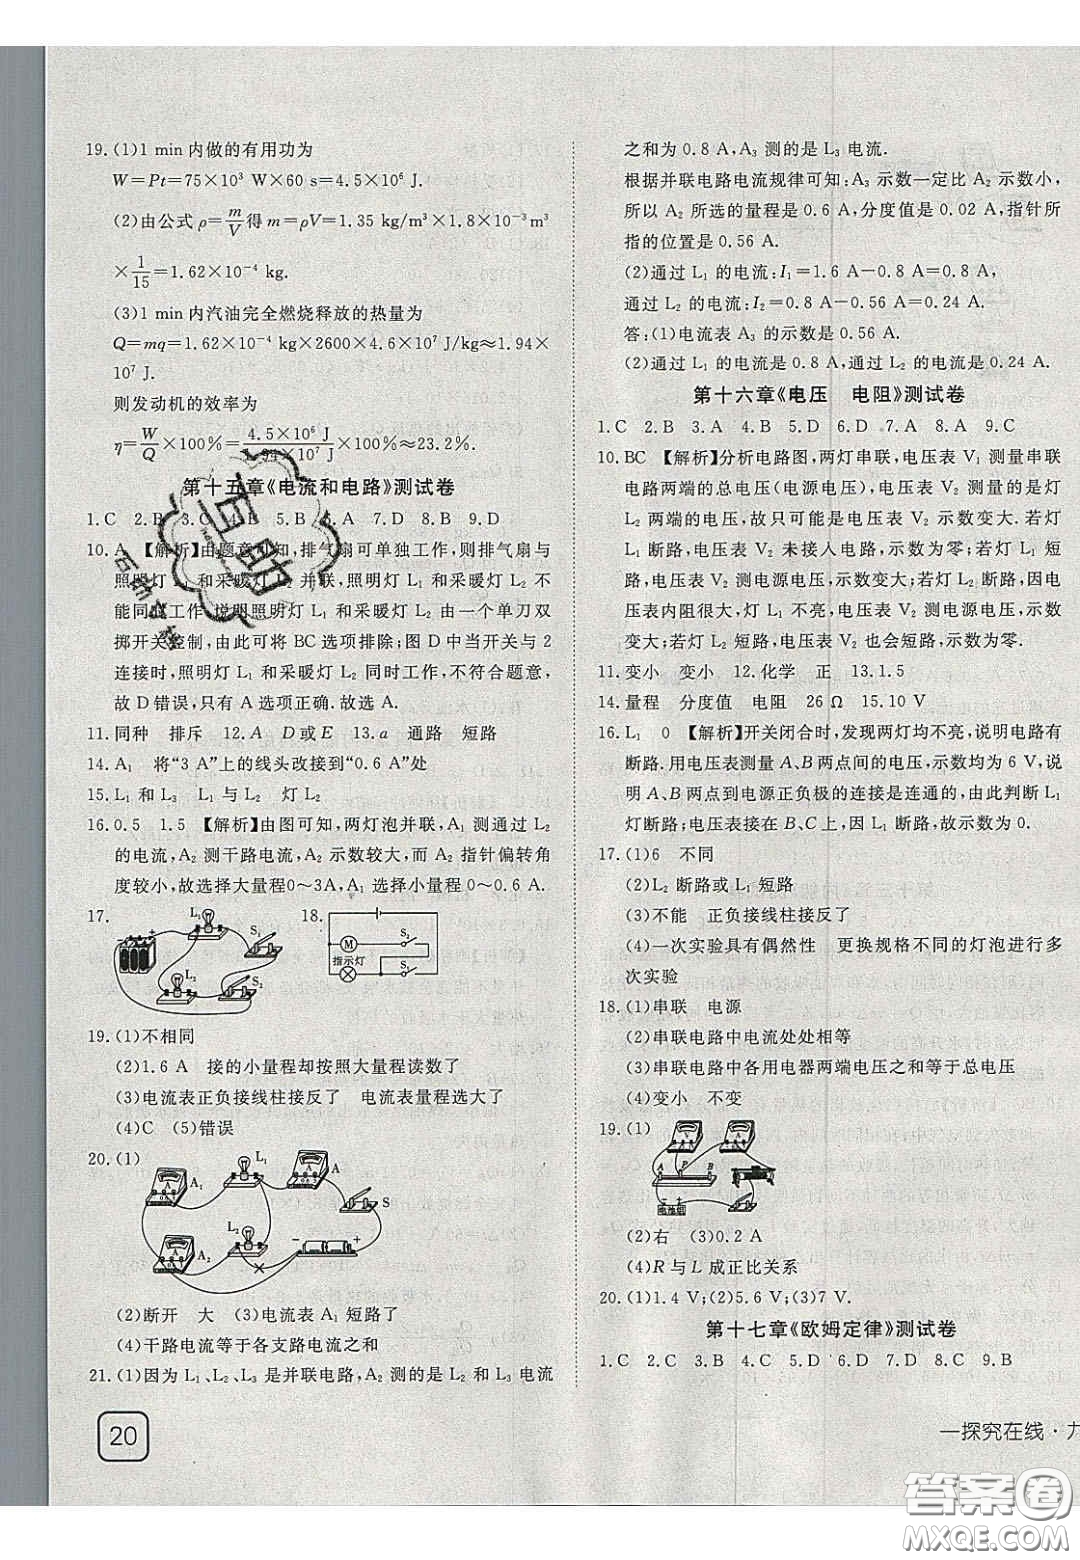 19. (1)1 min内做的有用功为
W=Pt=75×10³ W×60 s=4.5×10⁶ J.
(2)由公式ρ=m/V得m=ρV=1.35 kg/m³×1.8×10⁻³m³
×1/15=1.62×10⁻⁴ kg.
(3)1 min内汽油完全燃烧释放的热量为
Q=mq=1.62×10⁻⁴ kg×2600×4.6×10⁷ J/kg≈1.94×
10⁷ J.
则发动机的效率为
η=W/Q×100%=4.5×10⁶ J/1.94×10⁷ J×100%≈23.2%.
第十五章《电流和电路》测试卷
1.C 2.B 3.C 4.B 5.B 6.A 7.D 8.B 9.D
10. A 【解析】由题意可知,排气扇可单独工作,则排气扇与
照明灯 L₁ 和采暖灯 L₂ 并联,照明灯 L₁ 和采暖灯 L₂ 不
能同时工作,说明照明灯 L₁ 和采暖灯 L₂ 由一个单刀双
掷开关控制,由此可将 BC 选项排除;图 D 中当开关与 2
连接时,照明灯 L₁ 和采暖灯 L₂ 同时工作,不符合题意,
故 D 错误,只有 A 选项正确.故选 A.
11. 同种 排斥 12. A D或E 13. a 通路 短路
14. A₁ 将“3 A”上的线头改接到“0.6 A”处
15. L₁ 和 L₃ L₁ 与 L₂ 灯 L₂
16. 0.5 1.5 【解析】由图可知,两灯泡并联,A₁ 测通过 L₂
的电流,A₂ 测干路电流,A₂ 示数较大,而 A₂ 指针偏转角
度较小,故选择大量程0～3A,A₁ 选择小量程0～0.6 A.
17. L₁ S₁ L₂ S₂
18. M S₂ 指示灯 S₁
19. (1)不相同
(2)1.6 A 接的小量程却按照大量程读数了
(3)电流表正负接线柱接反了 电流表量程选大了
(4)C (5)错误
20. (1)
A A₁ L₁ A S L₂ A A₂ − +
(2)断开 大 (3)电流表 A₁ 短路了
(4)干路电流等于各支路电流之和
21. (1)因为 L₁、L₂、L₃ 是并联电路,A₂ 测的是 L₂ 和 L₃ 电流
20
之和为 0.8 A,A₃ 测的是 L₃ 电流.
根据并联电路电流规律可知:A₃ 示数一定比 A₂ 示数小,
所以 A₂ 所选的量程是 0.6 A,分度值是 0.02 A,指针所
指的位置是 0.56 A.
(2)通过 L₁ 的电流:I₁=1.6 A−0.8 A=0.8 A,
通过 L₂ 的电流:I₂=0.8 A−0.56 A=0.24 A.
答:(1)电流表 A₃ 的示数是 0.56 A.
(2)通过 L₁ 的电流是 0.8 A,通过 L₂ 的电流是 0.24 A.
第十六章《电压 电阻》测试卷
1.C 2.B 3.A 4.B 5.D 6.D 7.A 8.A 9.C
10. BC 【解析】分析电路图,两灯串联,电压表 V₁ 测量串联
电路两端的总电压(电源电压),电压表 V₂ 测量的是灯
L₂ 两端的电压,故只可能是电压表 V₂ 示数变大.若灯
L₁ 断路,电压表 V₂ 未接入电路,示数为零;若灯 L₁ 短
路,电压表 V₂ 测电源电压,示数变大;若灯 L₂ 断路,因电
压表内阻很大,灯 L₁ 不亮,电压表 V₂ 测电源电压,示数
变大;若灯 L₂ 短路,电压表 V₂ 也会短路,示数为零.
11. 变小 变小 12. 化学 正 13. 1.5
14. 量程 分度值 电阻 26 Ω 15. 10 V
16. L₁ 0 【解析】开关闭合时,发现两灯均不亮,说明电路有
断路.用电压表测量 A、B 两点间的电压,示数均为 6 V,说
明 A、B 两点到电源正负极的连接是连通的,由此判断 L₁
灯断路;电压表接在 B、C 上,因 L₁ 断路,故示数为 0.
17. (1)6 不同
(2)L₂ 断路或 L₁ 短路
(3)不能 正负接线柱接反了
(4)一次实验具有偶然性 更换规格不同的灯泡进行多
次实验
18. (1)串联 电源
(2)串联电路中电流处处相等
(3)串联电路中各用电器两端电压之和等于总电压
(4)变小 不变
19. (1)
A P B 电池组
(2)右 (3)0.2 A
(4)R 与 L 成正比关系
20. (1)1.4 V;(2)5.6 V;(3)7 V.
第十七章《欧姆定律》测试卷
1.C 2.C 3.B 4.C 5.D 6.D 7.D 8.C 9.B
一探究在线·九
答案圈
MXQE.COM